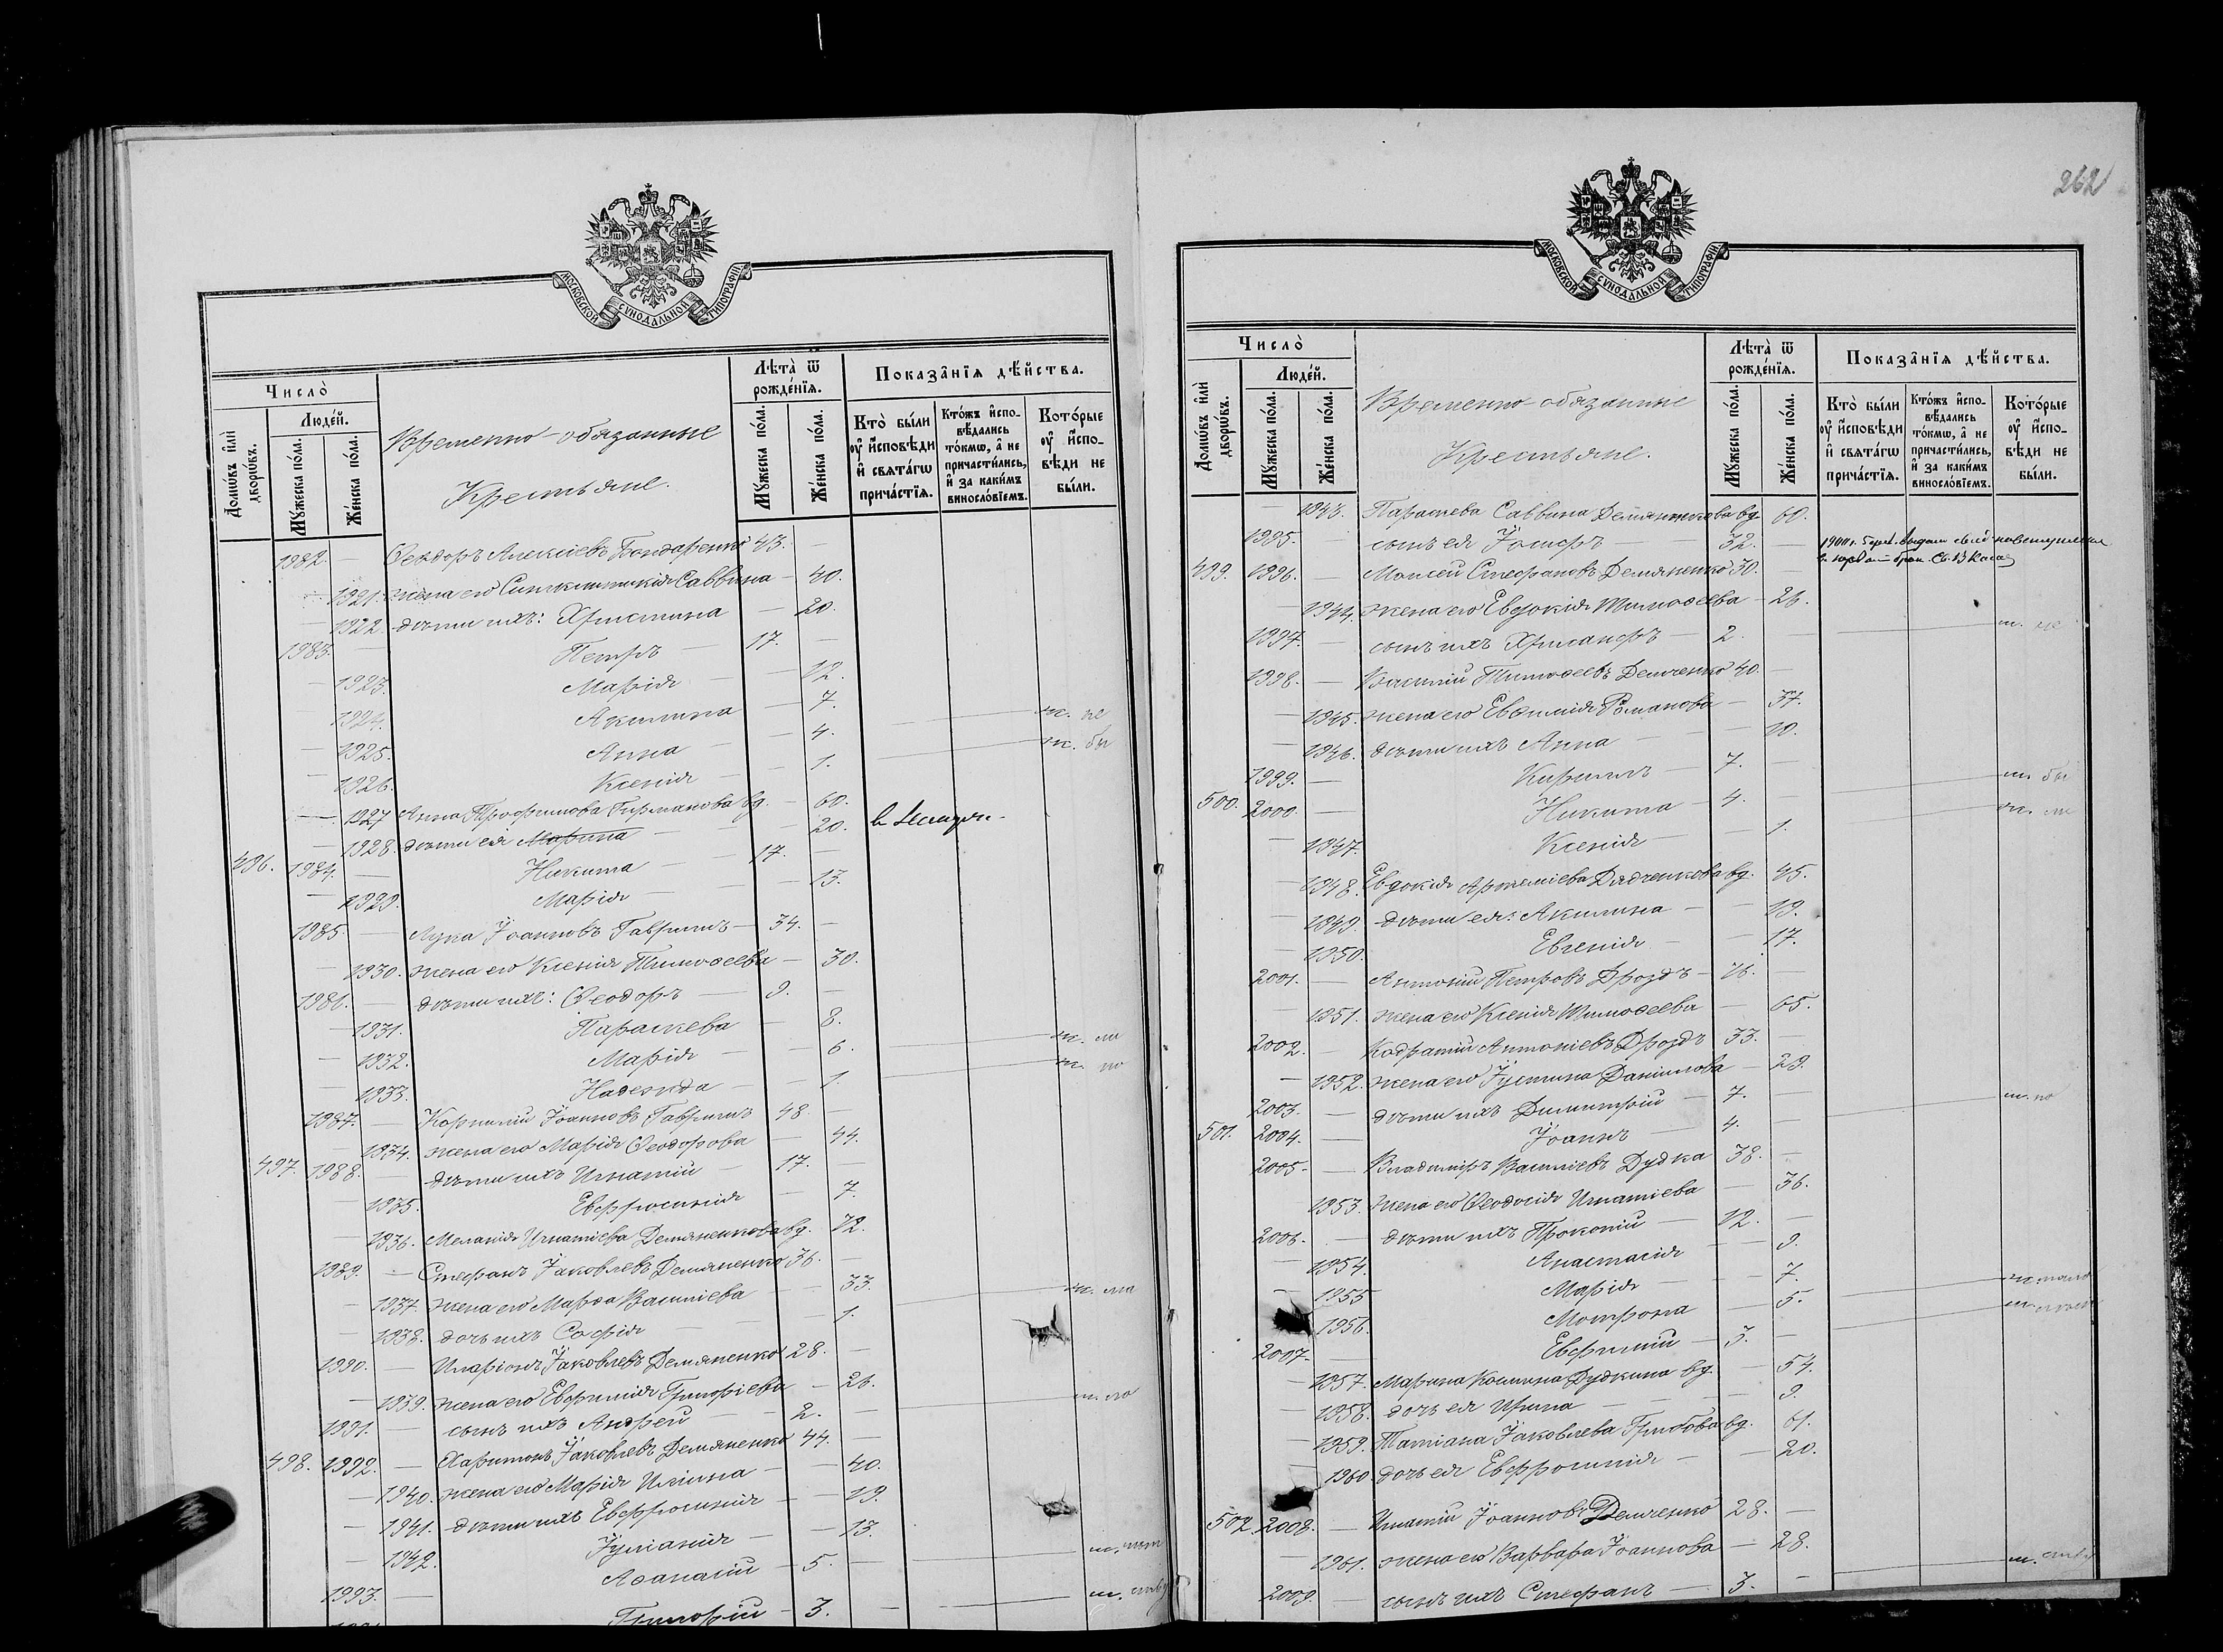 МОСКОВСКОЙ СУНОДАЛЬНОЙ ТИПОГРАФІИ
Число̀
Людей.
Домѡвъ и҆лѝ дворѡвъ.
Мꙋ́жеска по́ла.
Же́нска по́ла.
Временно-обязанные
Крестьяне.
Лѣта̀ ѿ рожде́нїѧ.
Мꙋ́жеска по́ла.
Же́нска по́ла.
Показа̑нїѧ дѣ́йства.
Кто̀ бы́ли ᲂу҆ и҆́сповѣди и҆ свѧта́гѡ прича́стїѧ.
Кто́жъ и҆спо-вѣ́дались то́кмѡ, а҆ не причасти́лись, и҆ за каки́мъ винословїемъ.
Кото́рые ᲂу҆ и҆́спо-вѣди не бы́ли.
1982. — Ѳеодоръ Алексіевъ Бондаренко 43. —
— 1921. жена его Синклитикія Саввина — 40.
— 1922. дѣти ихъ: Христина — 20.
1983. — Петръ — 17. —
— 1923. Марія — — 12.
— 1924. Акилина — 7.
— 1925. Анна — — 4. м. не
— 1926. Ксенія — — 1. м. бы
— 1927 Анна Трофимова Гирманова вд. — 60.
— 1928. дѣти ея Марина — — 20.
496. 1984. — Никита — 17. —
— 1929. Марія — — 13.
1985. — Лука Іоанновъ Гаврилъ — 34. —
— 1930. жена его Ксенія Тимоѳеева — 30.
1981. — дѣти ихъ: Ѳеодоръ — 9. —
— 1931. Параскева — 8.
— 1932. Марія — — 6.
— 1933. Надежда — 1.
1987. — Корнилій Іоанновъ Гаврилъ 48. —
— 1934. жена его Марія Ѳеодорова — 44.
497. 1988. — дѣти ихъ Игнатій — 17. —
— 1935. Евфросинія — 7.
— 1936. Меланія Игнатіева Демяненкова вд. 72.
1989. — Стефанъ Іаковлевъ Демяненко 36. —
— 1937. жена его Марѳа Василіева — 33.
— 1938. дочь ихъ Софія — — 1.
1990. — Иларіонъ Іаковлевъ Демяненко 28. —
— 1939. жена его Евфимія Григоріева — 26.
1991. — сынъ ихъ Андрей — 2. —
498. 1992. — Харитонъ Іаковлевъ Демяненко 44. —
— 1940. жена его Марія Иліина — — 40.
— 1941. дѣти ихъ Евфросинія — — 19.
— 1942. Іуліанія — — 13.
1993. — Аѳанасій — 5. —
Григорій — 3. —
262
МОСКОВСКОЙ СУНОДАЛЬНОЙ ТИПОГРАФІИ
Число̀
Людей.
Домѡвъ и҆лѝ дворѡвъ.
Мꙋ́жеска по́ла.
Же́нска по́ла.
Временно-обязанные
Крестьяне.
Лѣта̀ ѿ рожде́нїѧ.
Мꙋ́жеска по́ла.
Же́нска по́ла.
Показа̑нїѧ дѣ́йства.
Кто̀ бы́ли ᲂу҆ и҆́сповѣди и҆ свѧта́гѡ прича́стїѧ.
Кто́жъ и҆спо-вѣ́дались то́кмѡ, а҆ не причасти́лись, и҆ за каки́мъ винословїемъ.
Кото́рые ᲂу҆ и҆́спо-вѣди не бы́ли.
— 1943. Параскева Саввина Демяненкова вд. 60.
1995. — сынъ ея Іосифъ — 32. —
499. 1996. — Моисей Стефановъ Демяненко 30. —
— 1944. жена его Евдокія Тимоѳеева — 26.
1997. — сынъ ихъ Хрисанфъ — 2. —
1998. — Василій Тимоѳеевъ Демченко 40. —
— 1945. жена его Евфимія Романова — 37.
— 1946. дѣти ихъ Анна — — 10.
1999. — Кириллъ — 7. —
500. 2000. — Никита — 4. —
— 1947. Ксенія — — 1.
— 1948. Евдокія Артеміева Дядченкова вд. 45.
— 1949. дѣти ея: Акилина — 19.
— 1950. Евгенія — 17.
2001. — Антоній Петровъ Дроздъ — 76. —
— 1951. жена его Ксенія Тимоѳеева — 65.
2002. — Кодратій Антоніевъ Дроздъ 33. —
— 1952. жена его Іустина Даніилова — 29.
2003. — дѣти ихъ Димитрій — 7. —
501. 2004. — Іоаннъ — 4. —
2005. — Владиміръ Василіевъ Дудка 38. —
— 1953. жена его Ѳеодосія Игнатіева — 36.
2006. — дѣти ихъ Прокопій — 12. —
— 1954. Анастасія — 9.
— 1955 Марія — — 7.
1956. Матрона — — 5.
2007. — Евфимій — 3. —
— 1957. Марина Косьмина Дудкина вд. — 54.
— 1958. дочь ея Ирина — — 9.
— 1959. Татіана Іаковлева Грибова вд. 61.
— 1960 дочь ея Евфросинія — — 20.
502. 2008. — Игнатій Іоанновъ Демченко 28. —
— 1961. жена его Варвара Іоаннова — 28.
2009. — сынъ ихъ Стефанъ — 3. —